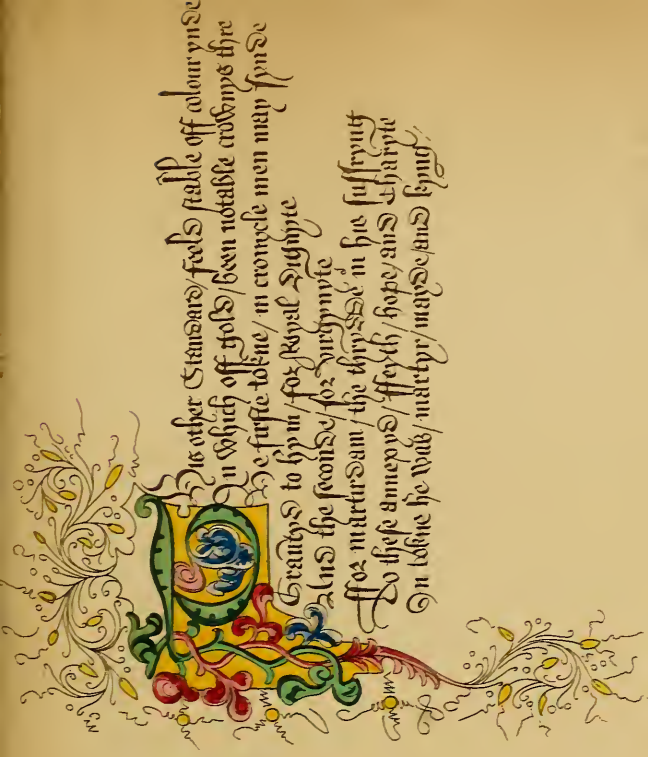 This other Standard / feeld stable off colour ynde
In which off gold / been notable crownys thre
The firste tokne / in cronycle men may fynde
Grauntyd to hym / for Royal dignyte
And the seconde / for virgynyte
Ffor martirdam / the thrydde in his suffryng
To these annexyd / ffeyth / hope / and charyte
In tokne he was / martyr / mayde / and kyng